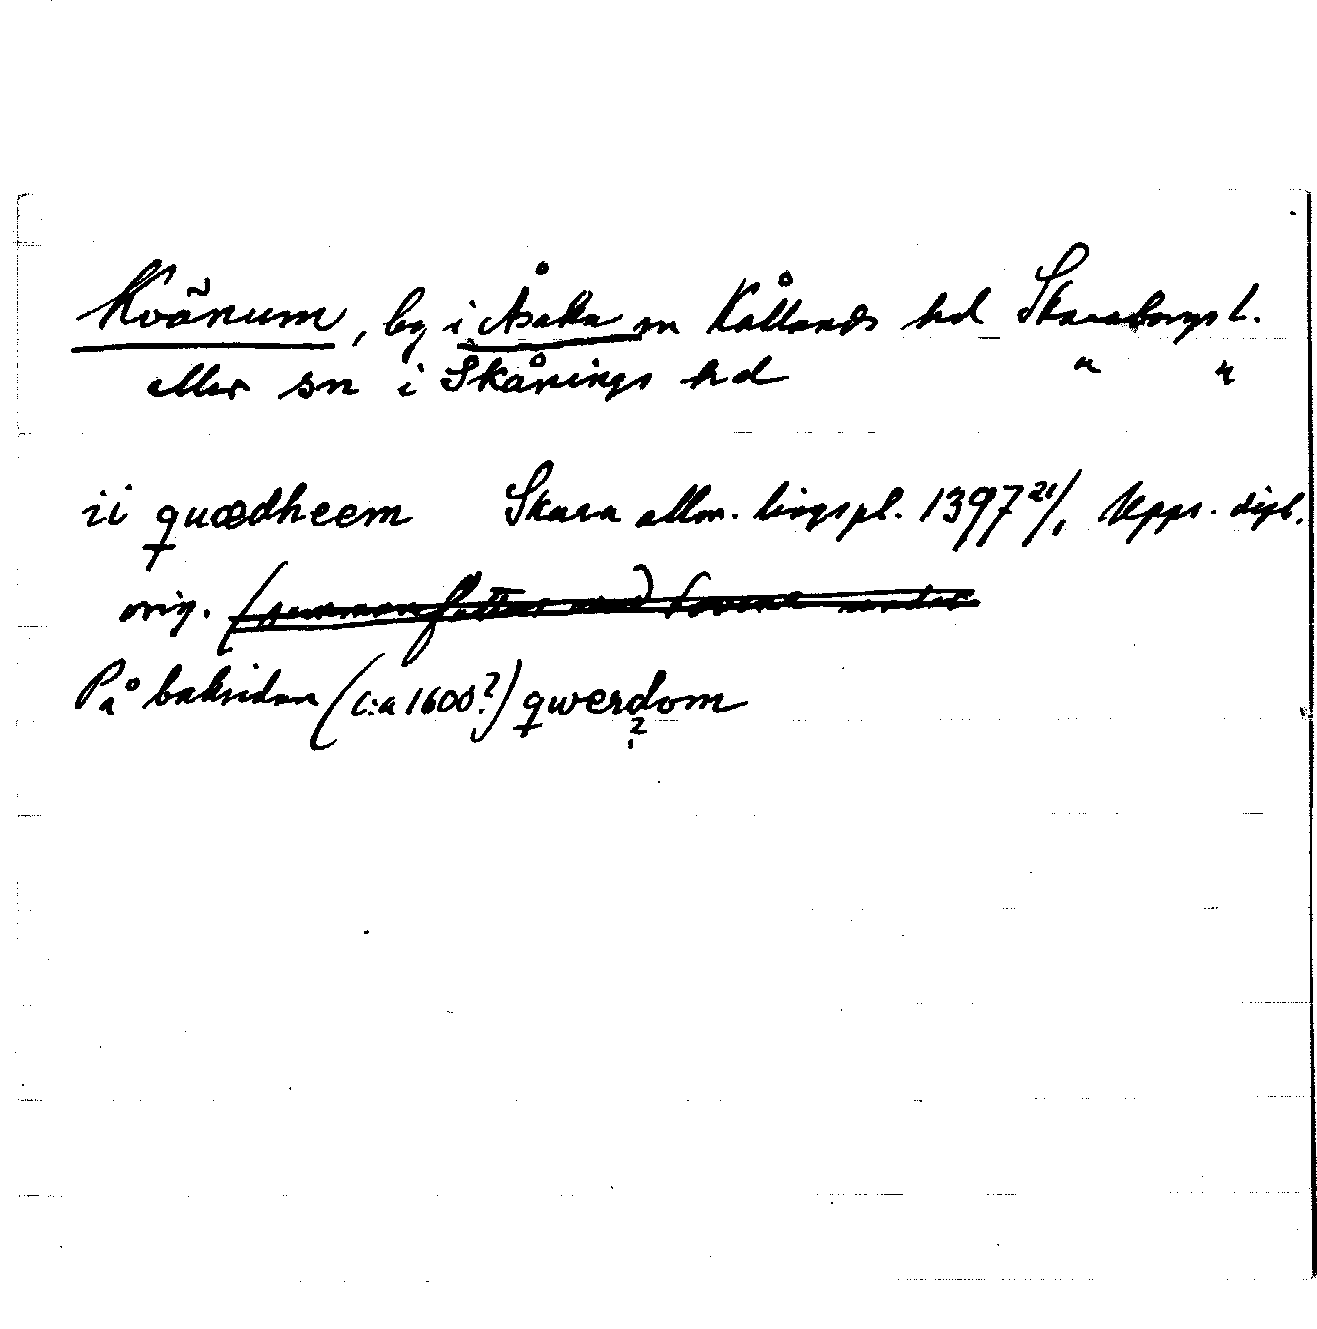 Kvänum, by i Åsaka sn Kållands hd Skaraborgs l.
eller sn i Skånings hd " "
ii quædheem Skara allm. tingspl. 1397 21/1 Upps. dipl.
orig.
På baksidan (c:a 1600?) qwerdom
?